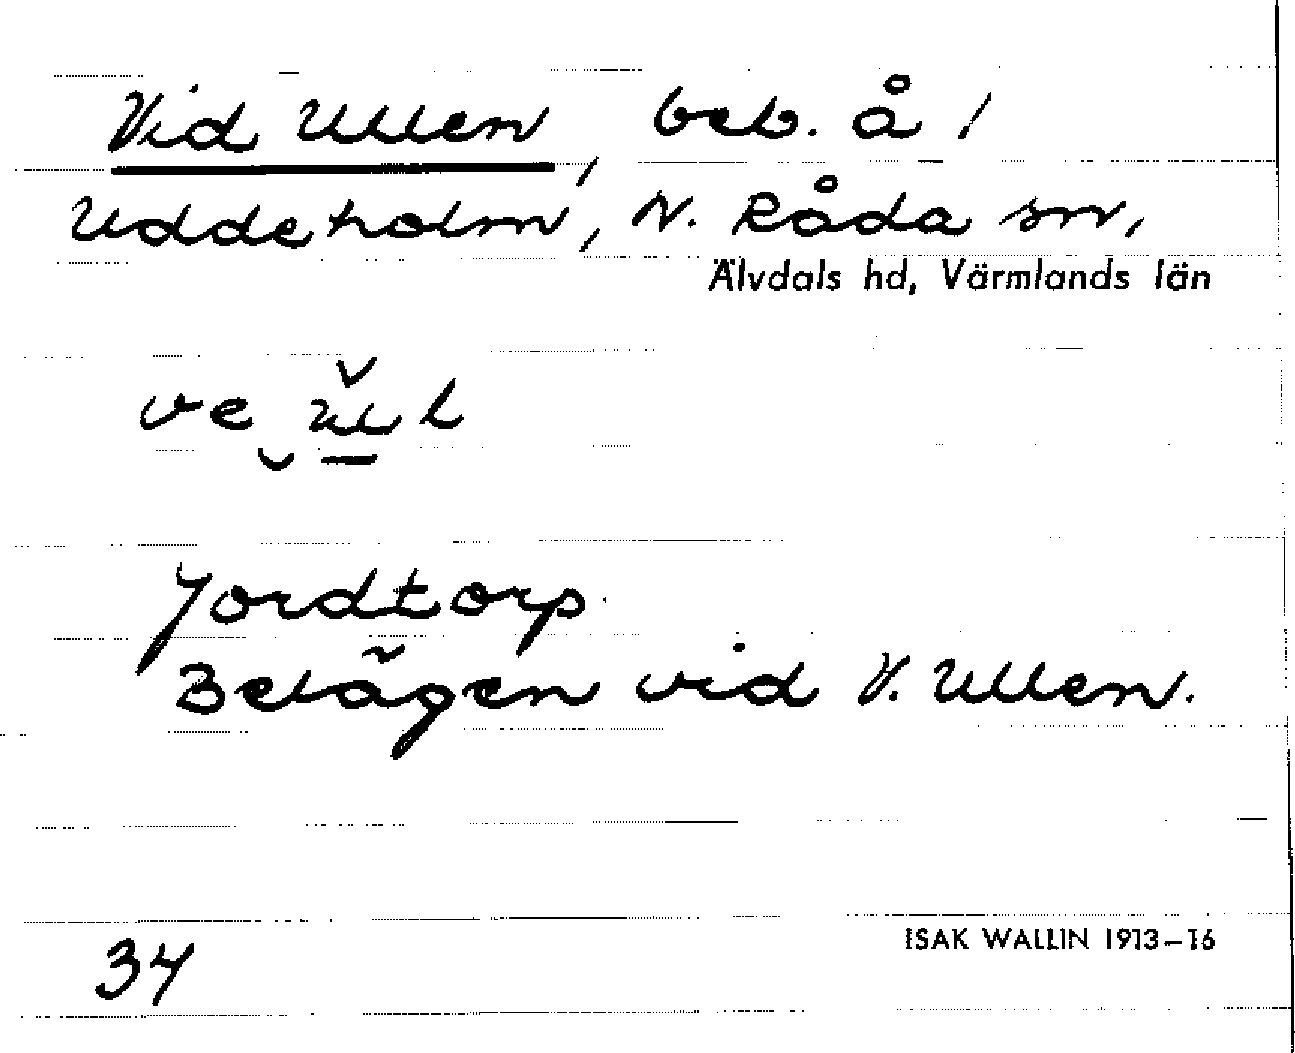 Vid Ullen, beb. å /
Uddeholm, N. Råda sn,
Älvdals hd, Värmlands län
Jordtorp.
Belägen vid V. Ullen.
34
ISAK WALLIN 1913–16